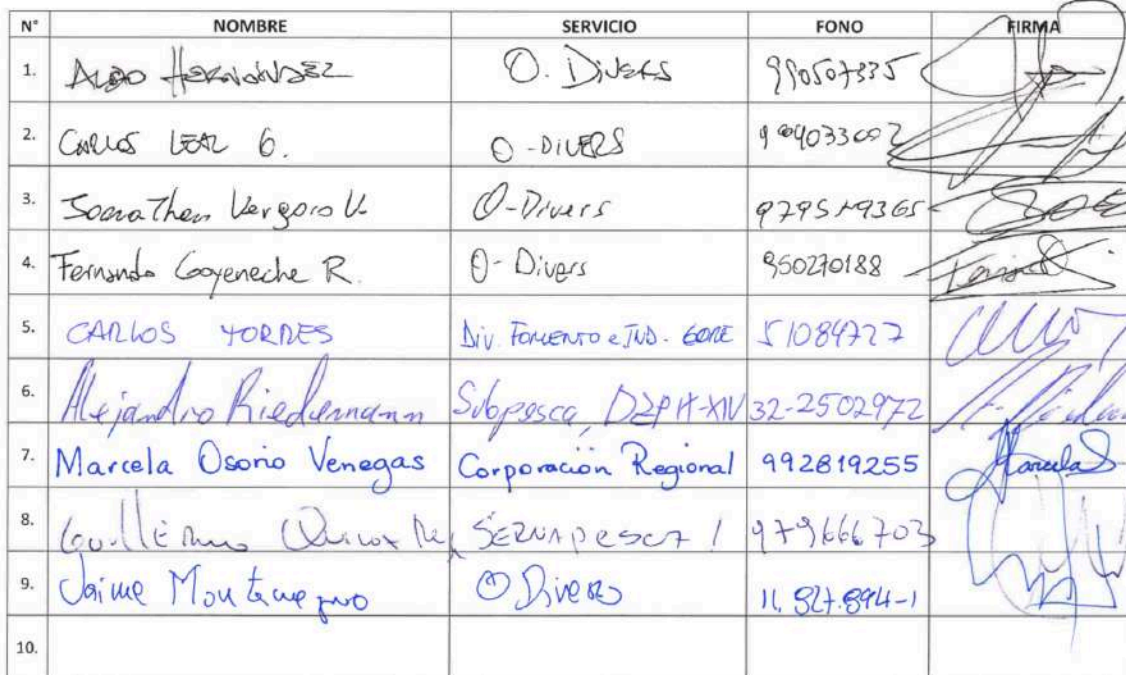 N° NOMBRE SERVICIO FONO FIRMA
1. ALDO HERNÁNDEZ O. DIVERS 990507335
2. CARLOS LEAL G. O-DIVERS
3. Vergara V. O-Divers
4. Fernando Goyeneche R. O-Divers 950270188
5. CARLOS TORRES Div. FOMENTO e IND. GORE 51084727
6. Alejandro Riedemann Subpesca, DZP 32-2502972
7. Marcela Osorio Venegas Corporación Regional 992819255 Marcela
8. Guillermo SERNAPESCA 979666703
9. Jaime Montenegro O Divers
10.